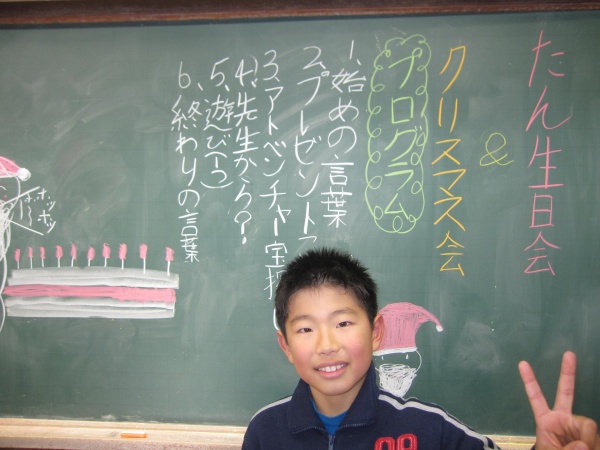 たん生日会
&
クリスマス会
プログラム
1、始めの言葉
2、プレゼント
3、アドベンチャー宝探
4、先生から?
5、遊び(1つ)
6、終わりの言葉
ホッ
ホッ
ホッ